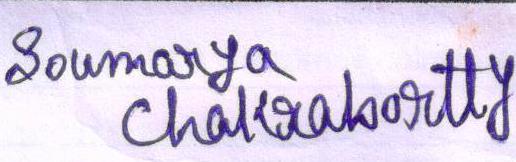 Soumarya
Chakrabortty